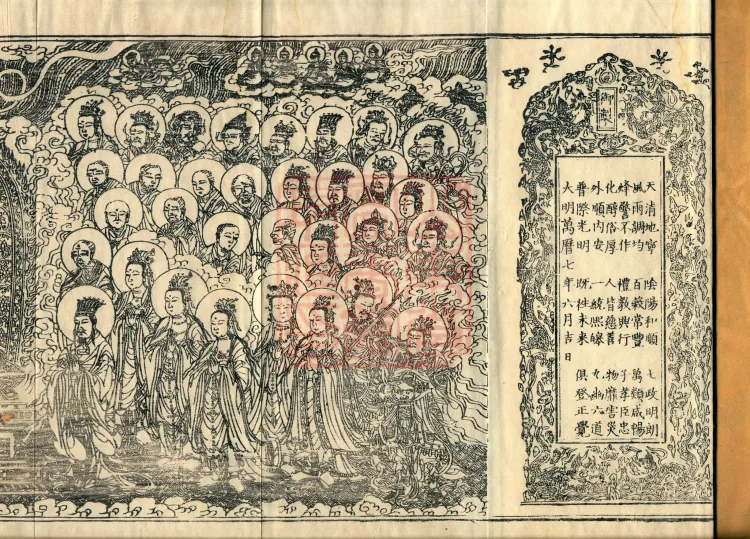 御製
天清地寧 陰陽和順 七政明朗
風雨調均 百穀常豐 萬類咸暢
烽警不作 禮教興行 子孝臣忠
化醇俗厚 人皆慈善 物靡害災
外順內安 一統熙皞 九幽六道
普際光明 既往未來 俱登正覺
大明萬曆七年六月吉日